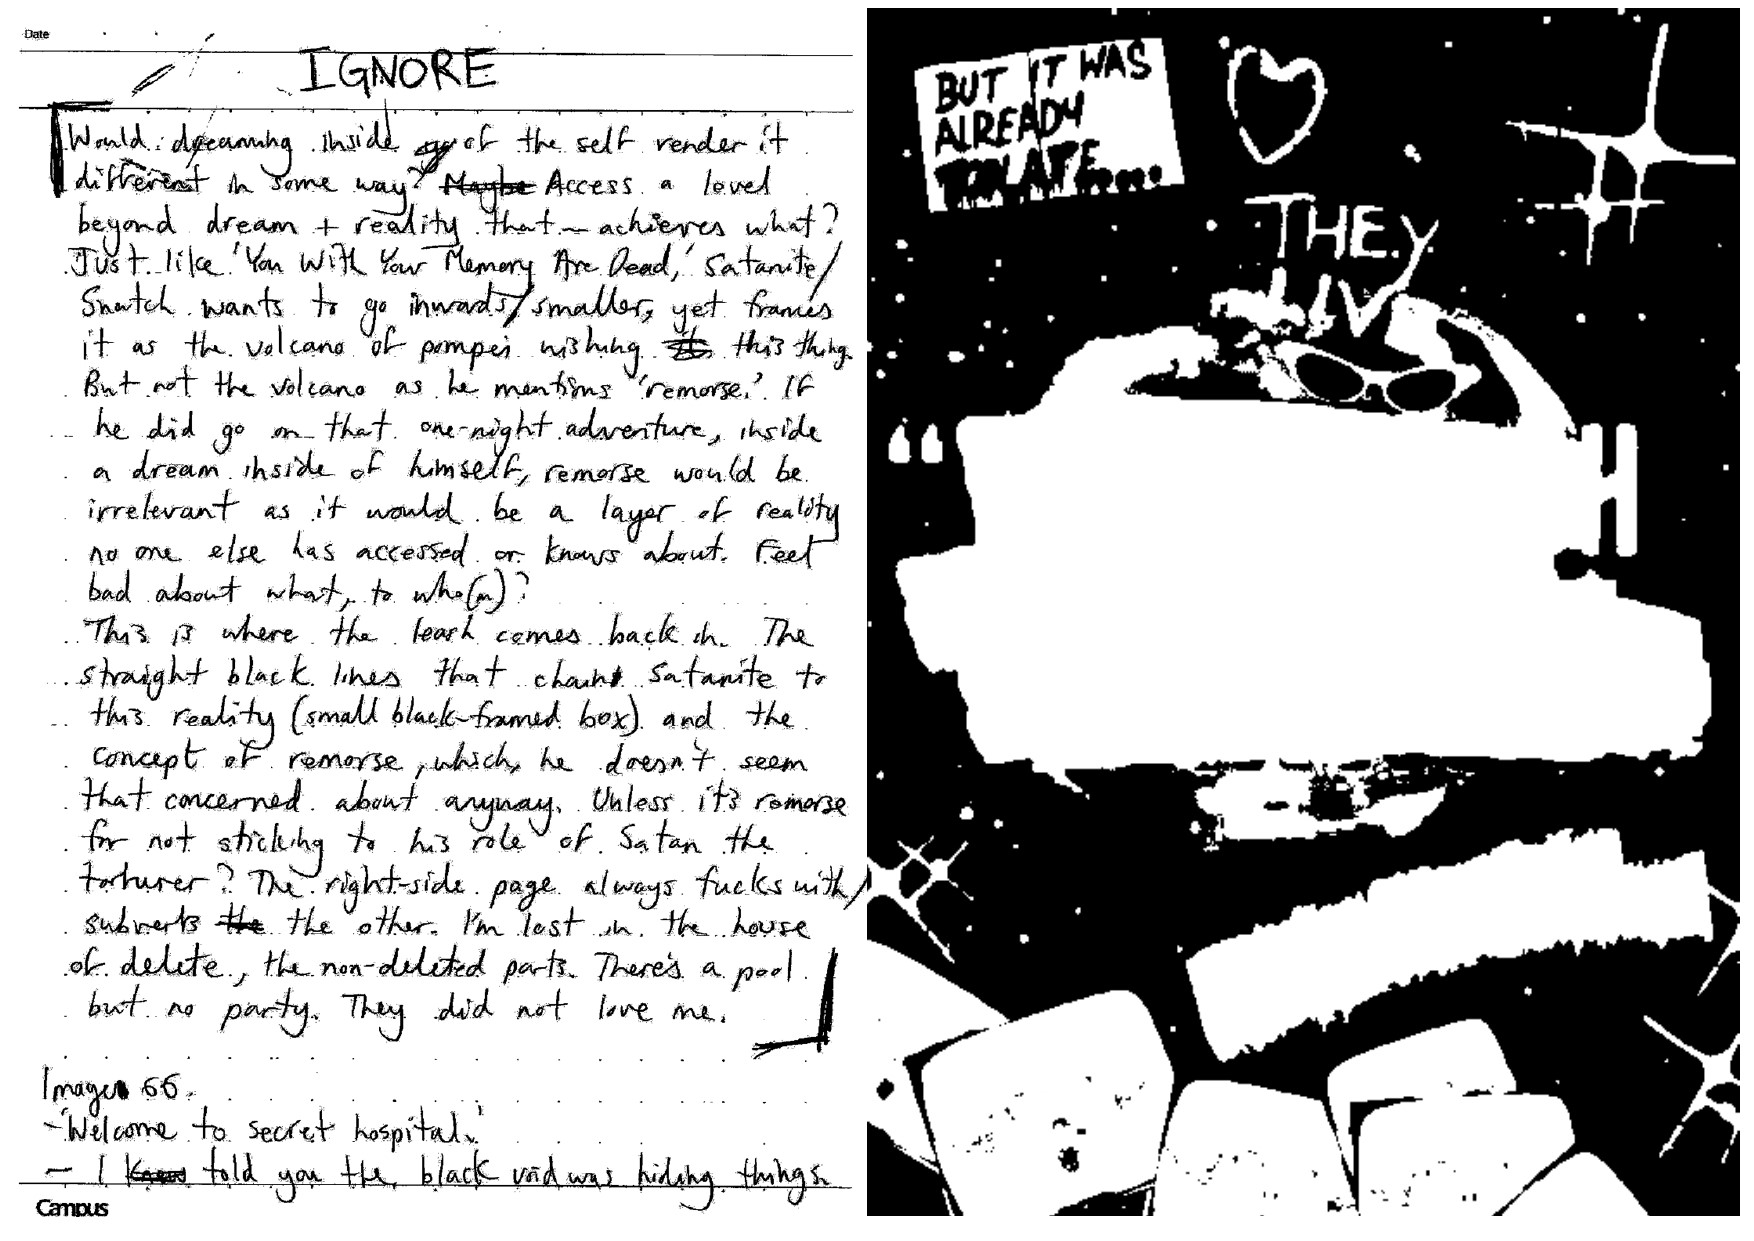 Date
IGNORE
Would dreaming inside of the self render it
different in some way? Maybe Access a loved
beyond dream + reality that — achieves what?
Just like 'You With Your Memory Are Dead,' Satanite/
Snatch wants to go inwards/smaller, yet frames
it as the volcano of pompei wishing it this thing.
But not the volcano as he mentions 'remorse.' If
he did go on that one-night adventure, inside
a dream inside of himself, remorse would be
irrelevant as it would be a layer of reality
no one else has accessed or knows about. Feel
bad about what, to who(m)?
This is where the leash comes back in. The
straight black lines that chain Satanite to
this reality (small black-framed box) and the
concept of remorse, which, he doesn't seem
that concerned about anyway. Unless it's remorse
for not sticking to his role of Satan the
torturer? The right-side page always fucks with/
subverts the the other. I'm lost in the house
of delete, the non-deleted parts. There's a pool
but no party. They did not love me.
Images 66.
- 'Welcome to secret hospital.'
- I told you the black void was hiding things.
Campus
BUT IT WAS
ALREADY
TOO LATE.....
THEY
LIV